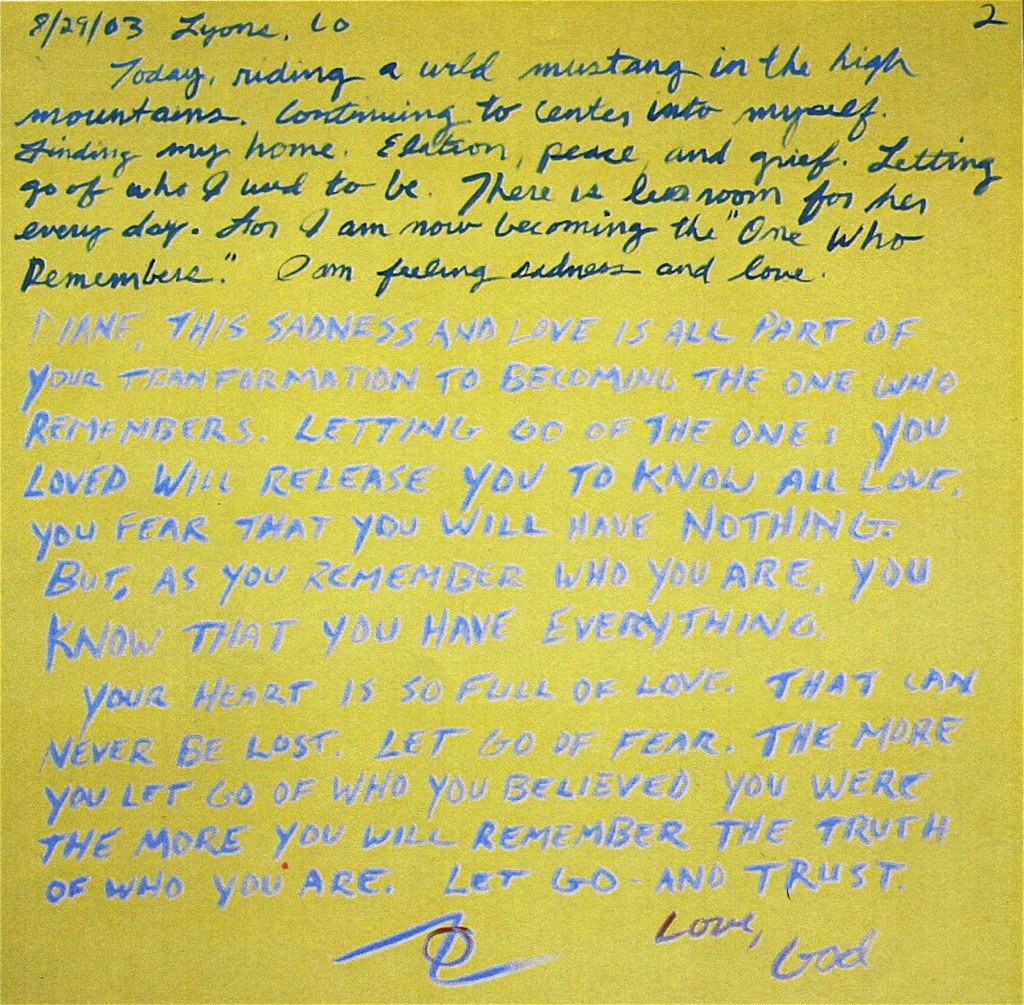 8/29/03 Lyons, CO 2
Today, riding a wild mustang in the high
mountains. Continuing to center into myself.
Finding my home. Elation, peace, and grief. Letting
go of who I used to be. There is less room for her
every day. For I am now becoming the "One Who
Remembers." I am feeling sadness and love.
DIANE, THIS SADNESS AND LOVE IS ALL PART OF
YOUR TRANFORMATION TO BECOMING THE ONE WHO
REMEMBERS. LETTING GO OF THE ONE YOU
LOVED WILL RELEASE YOU TO KNOW ALL LOVE.
YOU FEAR THAT YOU WILL HAVE NOTHING.
BUT, AS YOU REMEMBER WHO YOU ARE, YOU
KNOW THAT YOU HAVE EVERYTHING.
YOUR HEART IS SO FULL OF LOVE. THAT CAN
NEVER BE LOST. LET GO OF FEAR. THE MORE
YOU LET GO OF WHO YOU BELIEVED YOU WERE
THE MORE YOU WILL REMEMBER THE TRUTH
OF WHO YOU ARE. LET GO - AND TRUST.
Love,
God